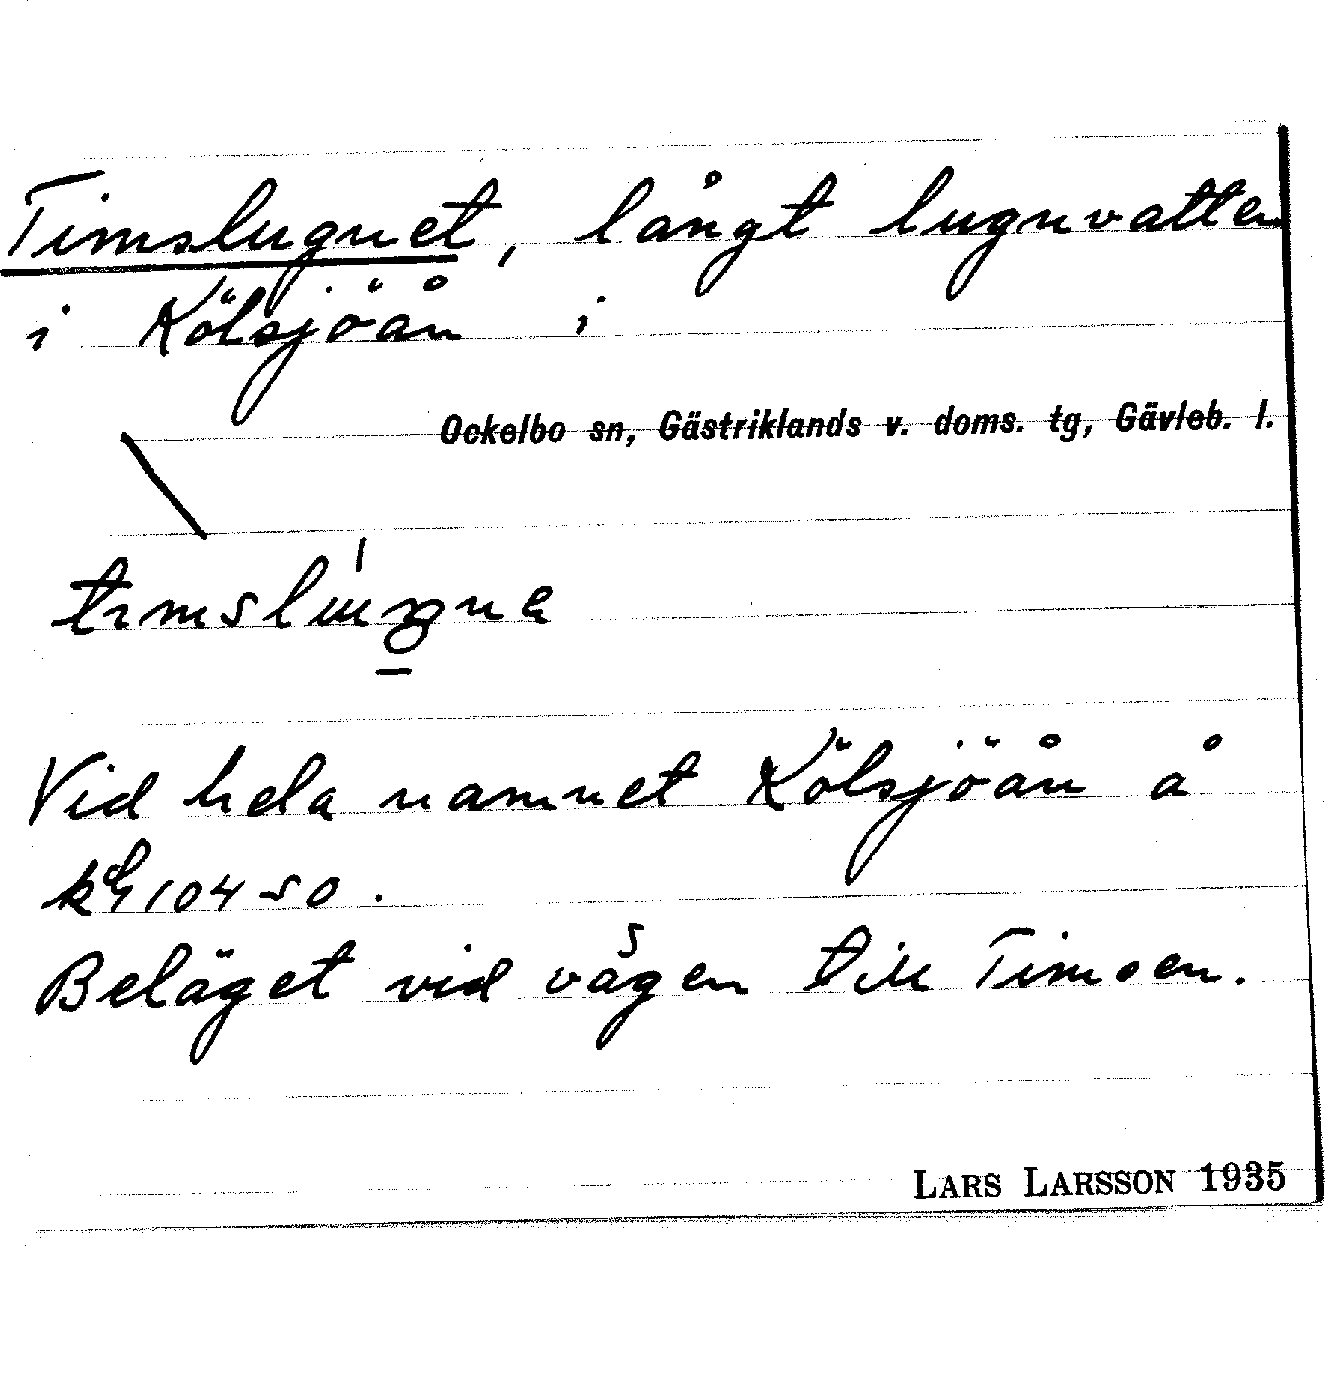 Timslugnet, långt lugnvatten
i Kölsjöån i
Ockelbo sn, Gästriklands v. doms. tg, Gävleb. l.
Vid hela namnet Kölsjöån å
10450.
Beläget vid vägen till Timsen.
LARS LARSSON 1935